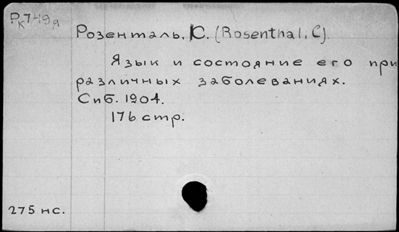 Рк749а
Розенталь, К. (Rosenthal, C)
Язык и состояние его при
различных заболеваниях.
Спб. 1904.
176 стр.
275 нс.